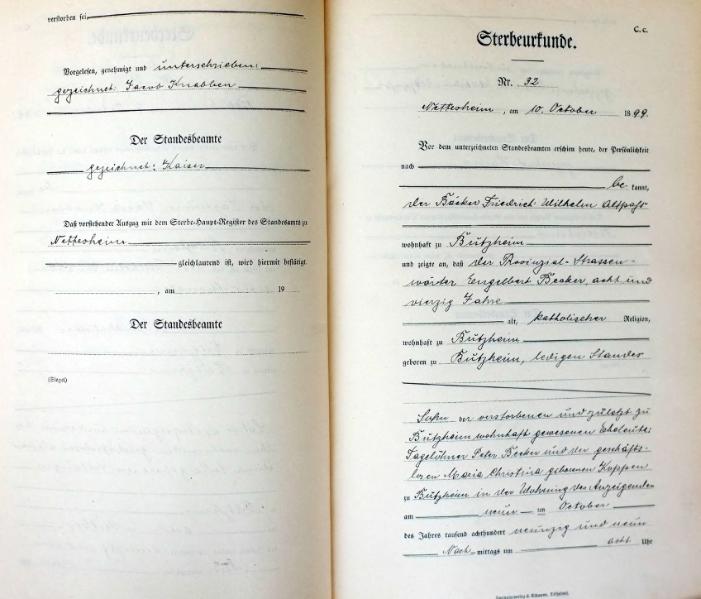 verstorben sei
Vorgelesen, genehmigt und unterschrieben:
gezeichnet: Jacob Knabben
Der Standesbeamte
gezeichnet: Kaiser
Daß vorstehender Auszug mit dem Sterbe-Haupt-Register des Standesamts zu
Nettesheim
gleichlautend ist, wird hiermit bestätigt.
, am 19
Der Standesbeamte
(Siegel)
C. c.
Sterbeurkunde.
Nr. 92
Nettesheim, am 10. October 1899.
Vor dem unterzeichneten Standesbeamten erschien heute, der Persönlichkeit
nach
be kannt,
der Bäcker Friedrich Wilhelm
wohnhaft zu Butzheim
und zeigte an, daß der Provinzial-Strassen-
wärter Engelbert Becker, acht und
vierzig Jahre
alt, katholischer Religion,
wohnhaft zu Butzheim
geboren zu Butzheim, ledigen Standes
Sohn der verstorbenen und zuletzt zu
Butzheim wohnhaft gewesenen Eheleute:
Tagelöhner Peter Becker und der geschäfts-
losen Maria Christina geborenen
zu Butzheim in der Wohnung des Anzeigenden
am neun ten October
des Jahres tausend achthundert neunzig und neun
Nach mittags um acht Uhr